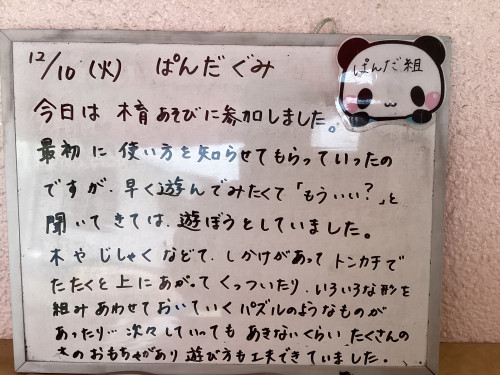 12/10 (火) ぱんだぐみ
ぱんだ組
今日は 木育あそびに参加しました。
最初に 使い方を知らせてもらっていったの
ですが、早く遊んでみたくて「もういい?」と
聞いてきては、遊ぼうとしていました。
木やじしゃくなどで、しかけがあって トンカチで
たたくと上にあがってくっついたり、いろいろな形を
組みあわせておいていくパズルのようなものが
あったり… 次々していっても あきないくらい たくさんの
木のおもちゃがあり 遊び方も工夫できていました。